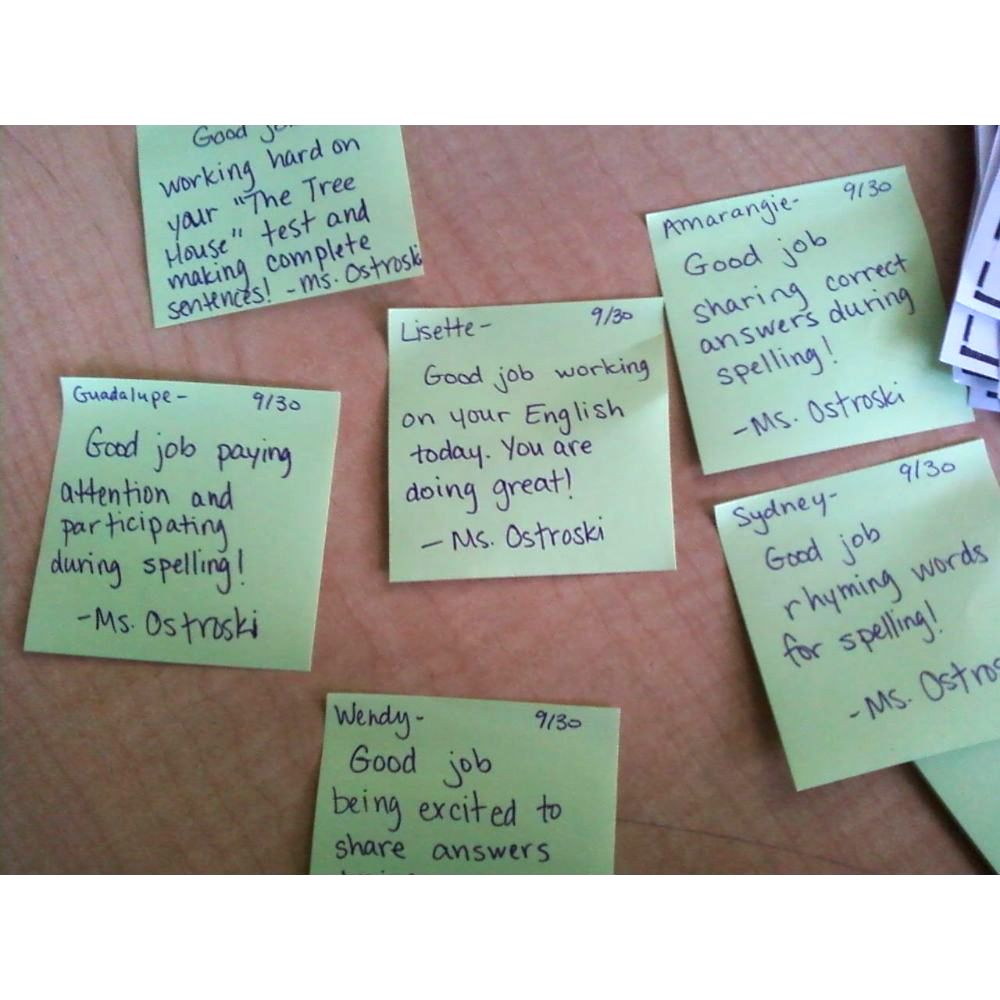 Good
working hard on
your "The Tree
House" test and
making complete
sentences! - Ms. Ostroski
Guadalupe- 9/30
Good job paying
attention and
participating
during spelling!
-Ms. Ostroski
Lisette- 9/30
Good job working
on your English
today. You are
doing great!
- Ms. Ostroski
Amarangie- 9/30
Good job
sharing correct
answers during
spelling!
-Ms. Ostroski
Sydney- 9/30
Good job
rhyming words
for spelling!
-Ms. Ostros
Wendy- 9/30
Good job
being excited to
share answers